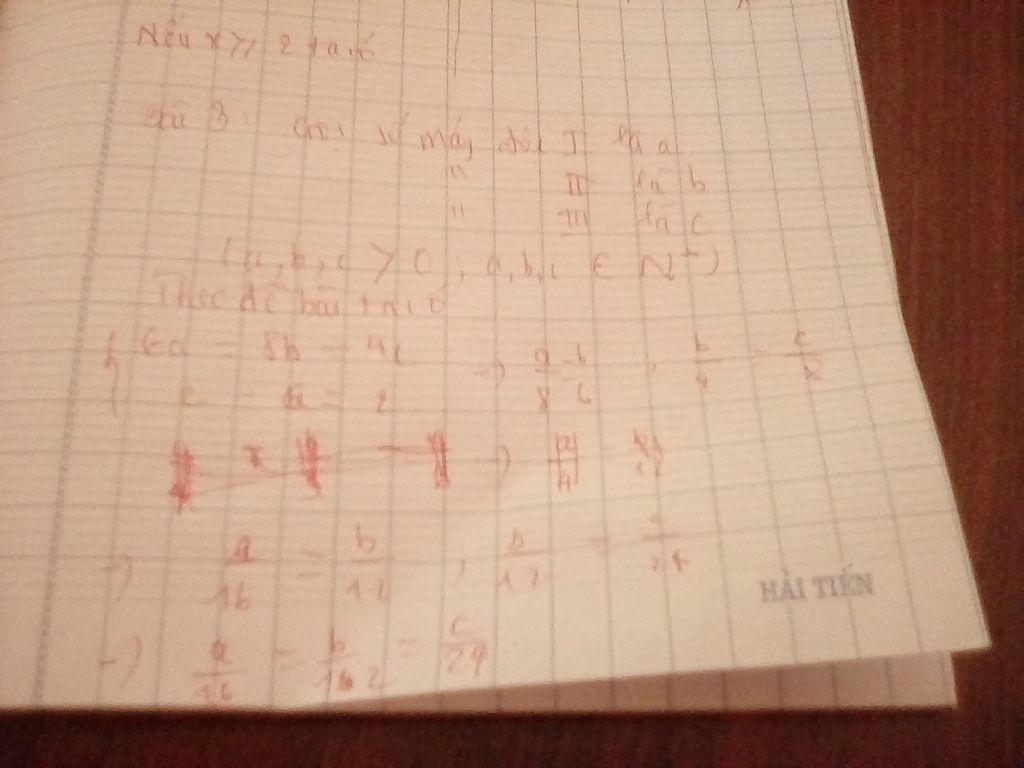 Nếu x ≥ 2 ta có
3: Gọi số máy đội I là a
" II là b
" III là c
(a, b, c > 0, a, b, c ∈ N+)
Theo đề bài ta có
6a = 8b = 4c → a/8 = b/6, b/4 = c/8
c - a = 2
→ a/16 = b/12, b/12 = c/24
HẢI TIẾN
→ a/16 = b/12 = c/24